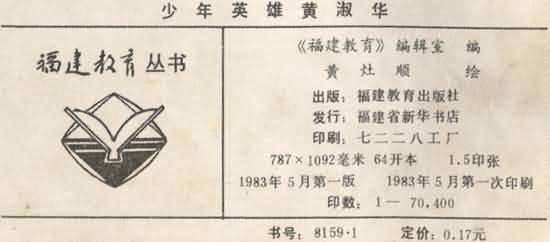 少年英雄黄淑华
福建教育丛书
《福建教育》编辑室 编
黄灶顺 绘
出版：福建教育出版社
发行：福建省新华书店
印刷：七二二八工厂
787×1092毫米 64开本 1.5印张
1983年5月第一版 1983年5月第一次印刷
印数：1—70,400
书号：8159·1 定价：0.17元